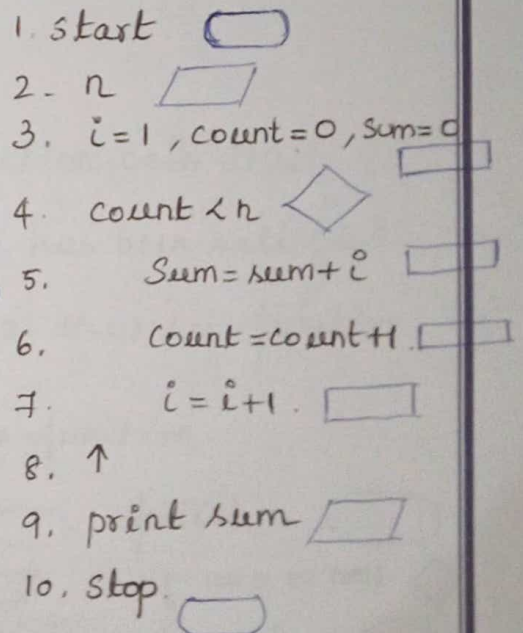 1. start
2- n
3. i=1, count=0, sum=0
4. count<n
5. Sum=sum+i
6. Count=count+1.
7. i=i+1.
8. ↑
9. print sum
10. Stop.